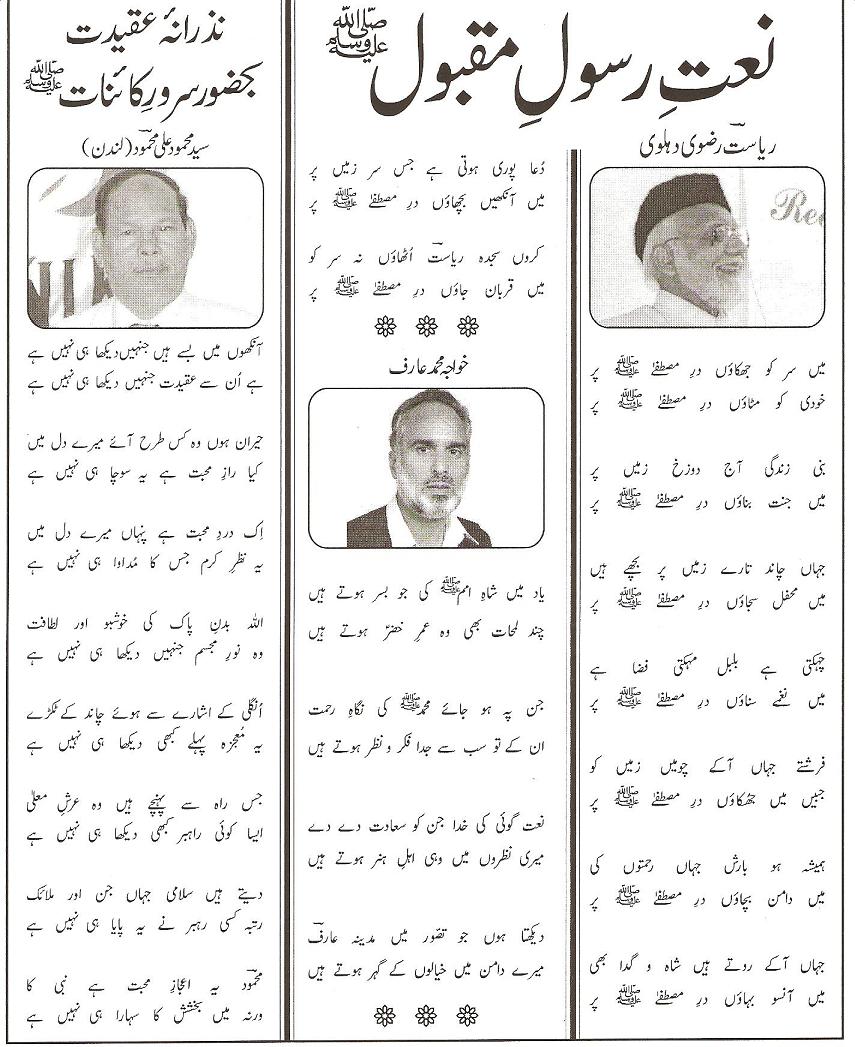 نعتِ رسولِ مقبول ﷺ
ریاستؔ رضوی دہلوی
میں سر کو جھکاؤں درِ مصطفےٰ ﷺ پر
خودی کو مٹاؤں درِ مصطفےٰ ﷺ پر
بنی زندگی آج دوزخ زمیں پر
میں جنت بناؤں درِ مصطفےٰ ﷺ پر
جہاں چاند تارے زمیں پر بچھے ہیں
میں محفل سجاؤں درِ مصطفےٰ ﷺ پر
چہکتی ہے بلبل مہکتی فضا ہے
میں نغمے سناؤں درِ مصطفےٰ ﷺ پر
فرشتے جہاں آکے چومیں زمیں کو
جبیں میں جھکاؤں درِ مصطفےٰ ﷺ پر
ہمیشہ ہو بارش جہاں رحمتوں کی
میں دامن بچاؤں درِ مصطفےٰ ﷺ پر
جہاں آکے روتے ہیں شاہ و گدا بھی
میں آنسو بہاؤں درِ مصطفےٰ ﷺ پر
دُعا پوری ہوتی ہے جس سر زمیں پر
میں آنکھیں بچھاؤں درِ مصطفےٰ ﷺ پر
کروں سجدہ ریاستؔ اُٹھاؤں نہ سر کو
میں قربان جاؤں درِ مصطفےٰ ﷺ پر
خواجہ محمد عارف
یاد میں شاہِ امم ﷺ کی جو بسر ہوتے ہیں
چند لمحات بھی وہ عمرِ خضرؑ ہوتے ہیں
جن پہ ہو جائے محمد ﷺ کی نگاہِ رحمت
ان کے تو سب سے جدا فکر و نظر ہوتے ہیں
نعت گوئی کی خدا جن کو سعادت دے دے
میری نظروں میں وہی اہلِ ہنر ہوتے ہیں
دیکھتا ہوں جو تصّور میں مدینہ عارفؔ
میرے دامن میں خیالوں کے گہر ہوتے ہیں
نذرانۂ عقیدت
بحضور سرورِ کائنات ﷺ
سید محمود علی محمودؔ (لندن)
آنکھوں میں بسے ہیں جنہیں دیکھا ہی نہیں ہے
ہے اُن سے عقیدت جنہیں دیکھا ہی نہیں ہے
حیران ہوں وہ کس طرح آئے میرے دل میں
کیا رازِ محبت ہے یہ سوچا ہی نہیں ہے
اِک دردِ محبت ہے پنہاں میرے دل میں
یہ نظرِ کرم جس کا مُداوا ہی نہیں ہے
اللہ بدنِ پاک کی خوشبو اور لطافت
وہ نورِ مجسم جنہیں دیکھا ہی نہیں ہے
اُنگلی کے اشارے سے ہوئے چاند کے ٹکڑے
یہ مُعجزہ پہلے کبھی دیکھا ہی نہیں ہے
جس راہ سے پہنچے ہیں وہ عرشِ معلیٰ
ایسا کوئی راہبر کبھی دیکھا ہی نہیں ہے
دیتے ہیں سلامی جہاں جن اور ملائک
رتبہ کسی رہبر نے یہ پایا ہی نہیں ہے
محمودؔ یہ اعجازِ محبت ہے نبی کا
ورنہ میں بخشش کا سہارا ہی نہیں ہے